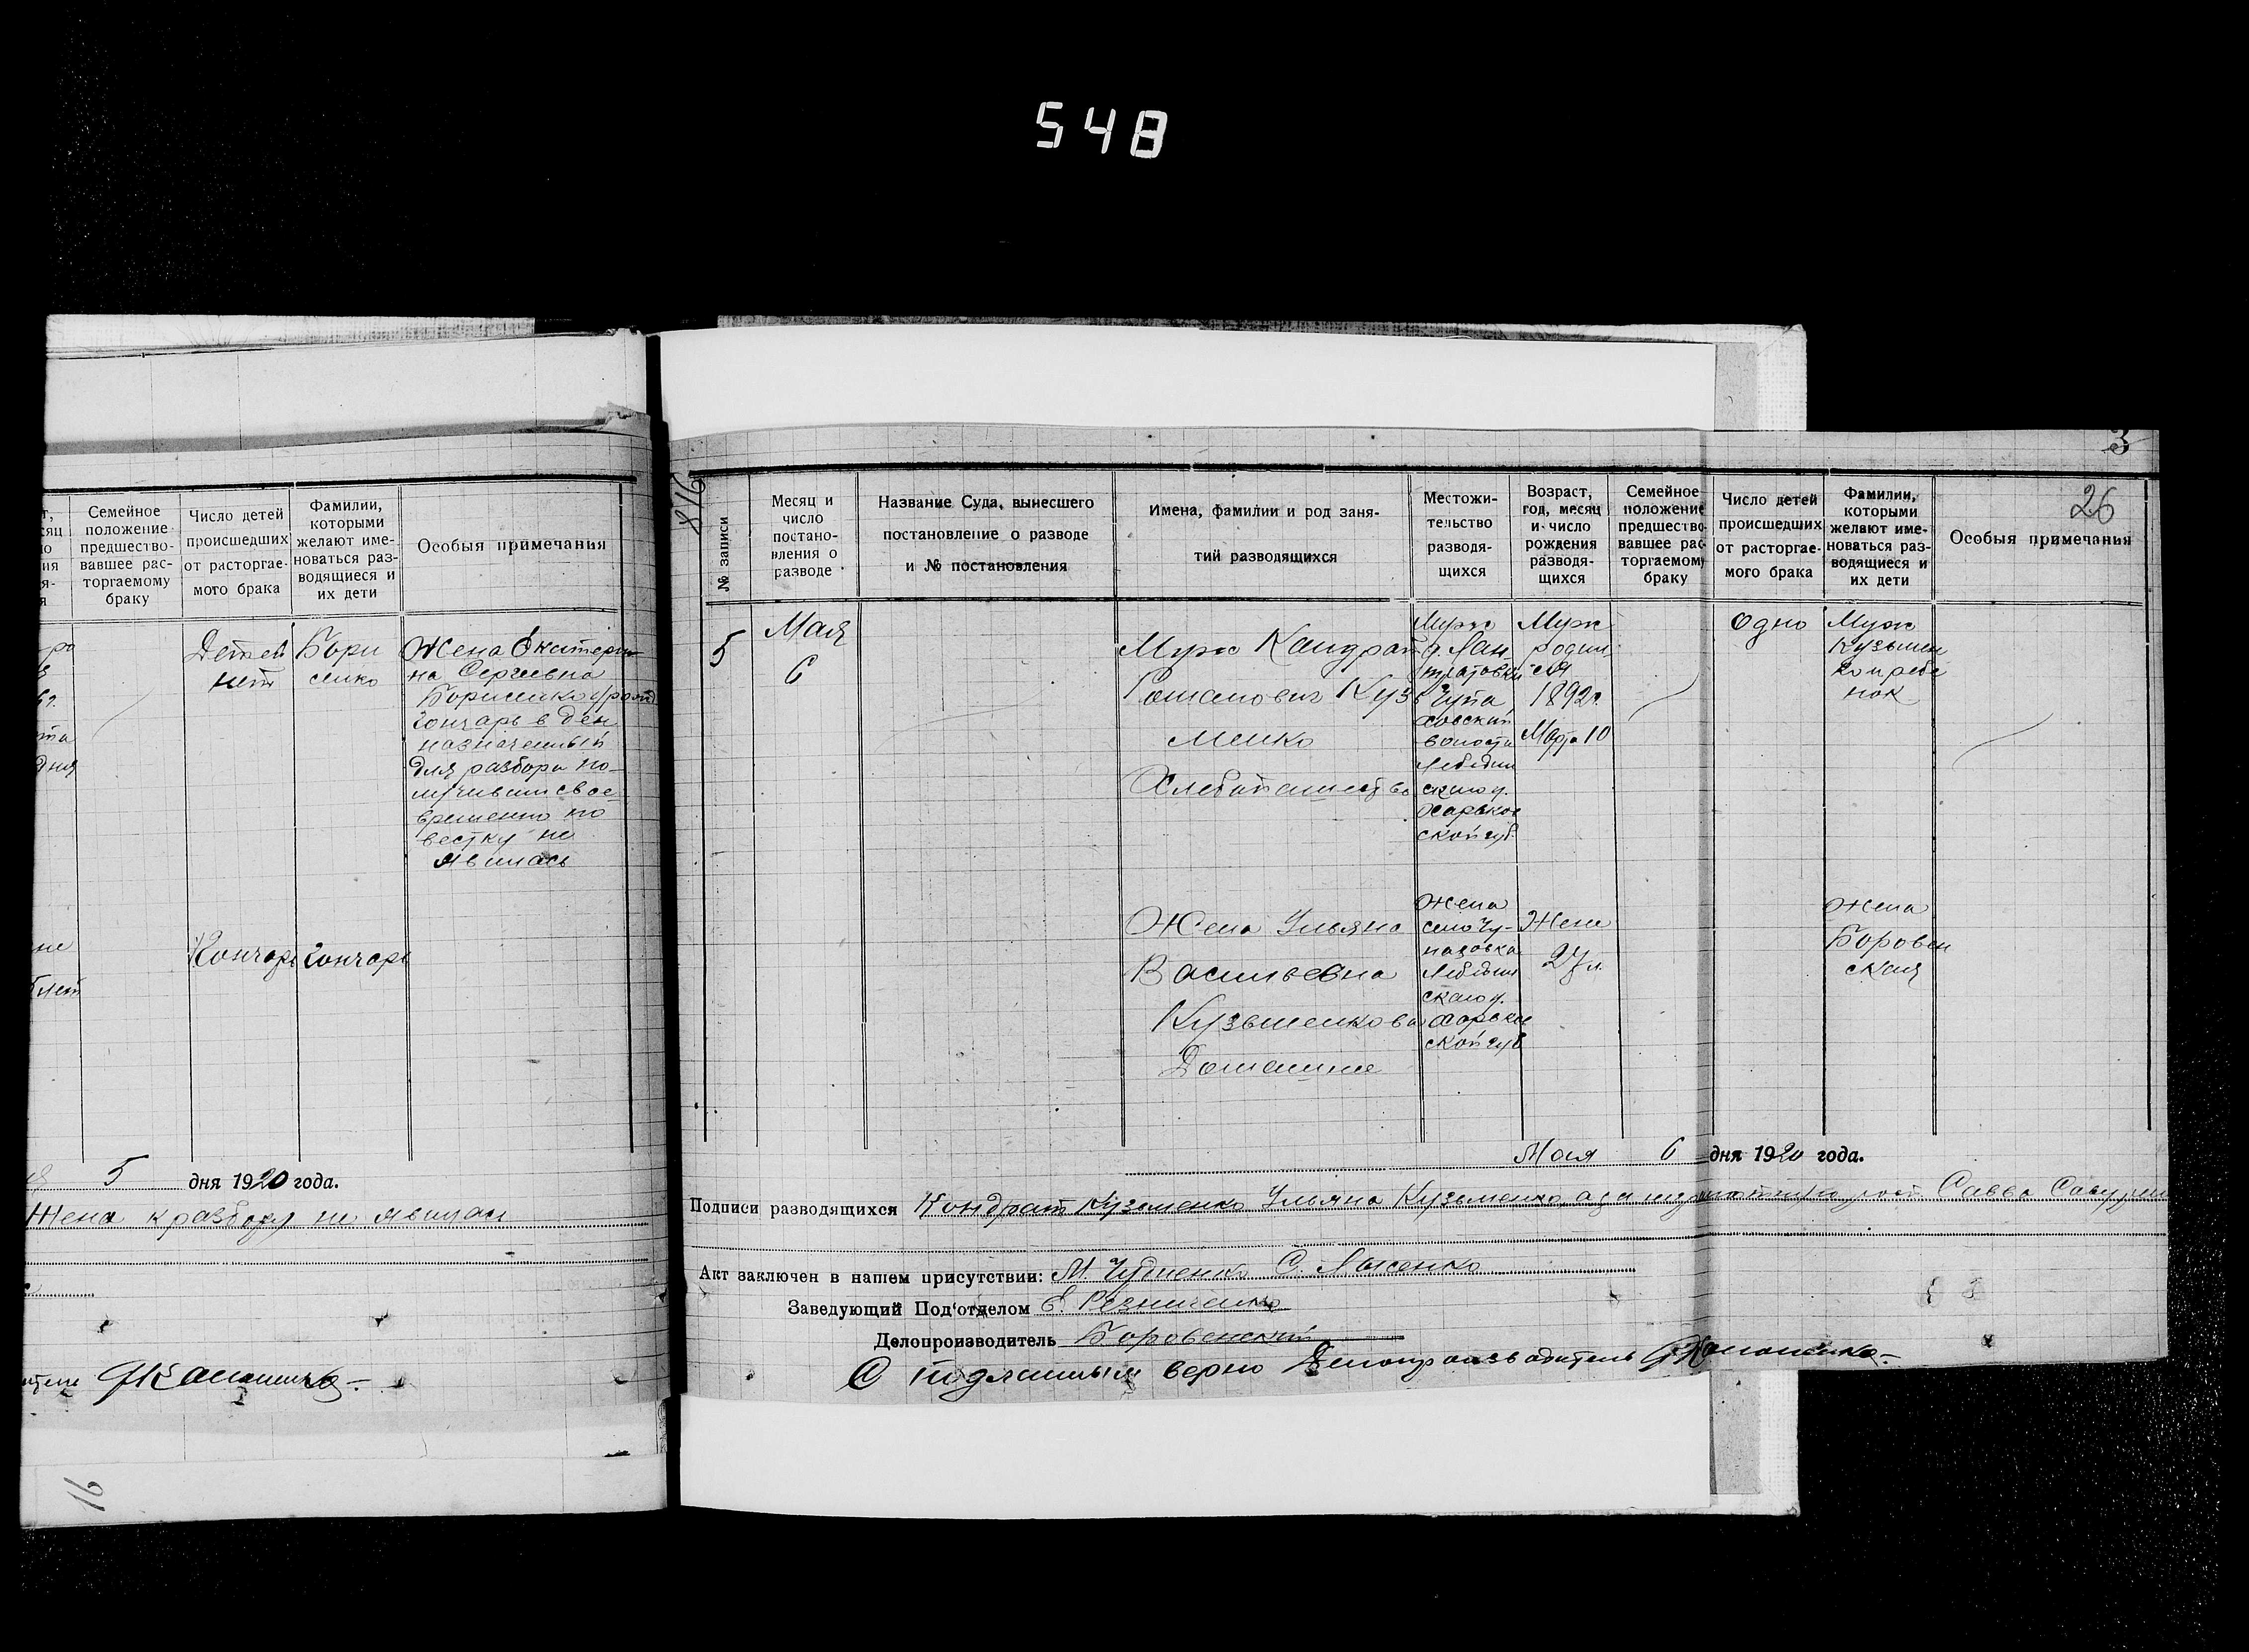 548
3
26
816
Семейное положение предшествовавшее расторгаемому браку
Число детей происшедших от расторгаемого брака
Фамилии, которыми желают именоваться разводящиеся и их дети
Особыя примечания
Детей
нет
Бори
сенко
Жена Екатери
на Сергеевна
Борисенко урожд
Гончарь в ден
назначенный
для разбора по
лучивши свое
временно по
вестку не
явилась
Гончарь
Гончарь
5 дня 1920 года.
Жена к разбору не явилась
16
№ записи
Месяц и число постановления о разводе
Название Суда, вынесшего постановление о разводе и № постановления
Имена, фамилии и род занятий разводящихся
Местожительство разводящихся
Возраст, год, месяц и число рождения разводящихся
Семейное положение предшествовавшее расторгаемому браку
Число детей происшедших от расторгаемого брака
Фамилии, которыми желают именоваться разводящиеся и их дети
Особыя примечания
5
Мая
6
Муж Кандрат
Романович Кузь
менко
Хлебопашество
Муж
волости
Лебедин
скаго у.
Харьков
ской губ.
Муж
родил
ся
1892г.
Марта 10
Одно
Муж
Кузьмен
ко и ребе
нок
Жена Ульяна
Васильевна
Кузьменкова
Домашние
Жена
село Чу-
паховка
Лебедин
скаго у.
Харьков
ской губ
Жене
27 л.
Жена
Боровен
ская
Мая 6 дня 1920 года.
Подписи разводящихся Кондрат Кузьменко Ульяна Кузьменко, а за неграмотную Савва
Акт заключен в нашем присутствии: М. Чудненко С. Лысенко
Заведующий Под'отделом Е. Резниченко
Делопроизводитель Боровенский
С подлинным верно Делопроизводитель